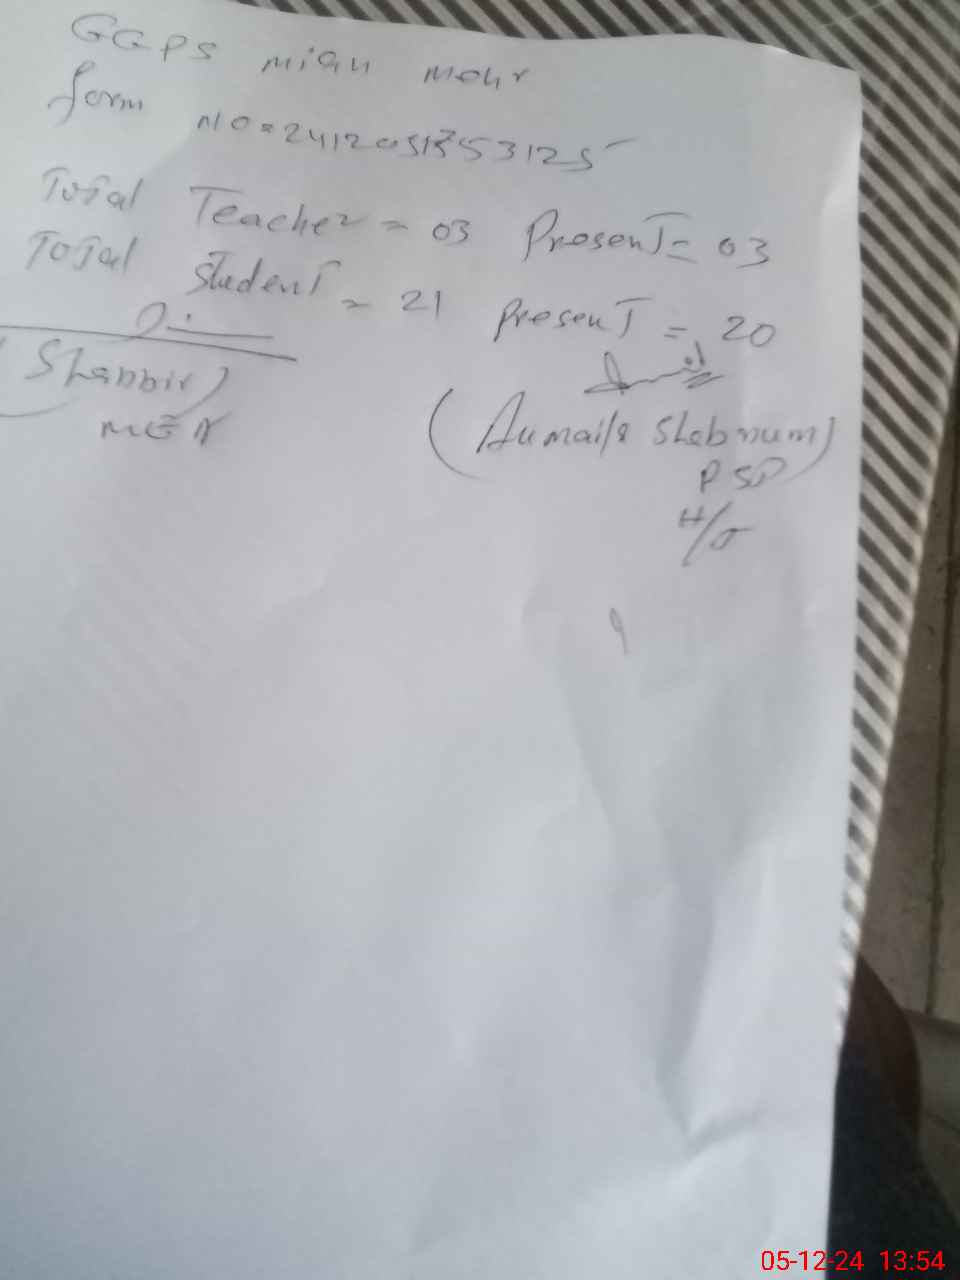 GGPS mian mohr
form NO = 24120513553125
Total Teacher = 03 Present = 03
Total Student = 21 present = 20
(Shabbir)
MEA
(Aumaila Shabnum)
PSP
H/T
05-12-24 13:54